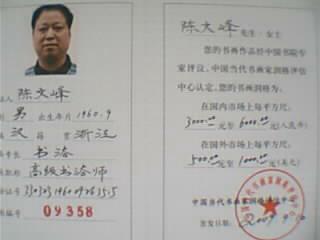 人 陈文峰
男 出生年月 1960.9
汉 籍贯 浙江
专长 书法
职称 高级书法师
证号
编号 09358
陈文峰 先生·女士
您的书画作品经中国书院专
家评议、中国当代书画家润格评估
中心认定，您的书画润格为：
在国内市场上每平方尺：
3000.00 元至 6000.00 元(人民币)
在国际市场上每平方尺：
500.00 元至 1000.00 元(美元)
中国当代书画家润格评估中心
签发日期：2009